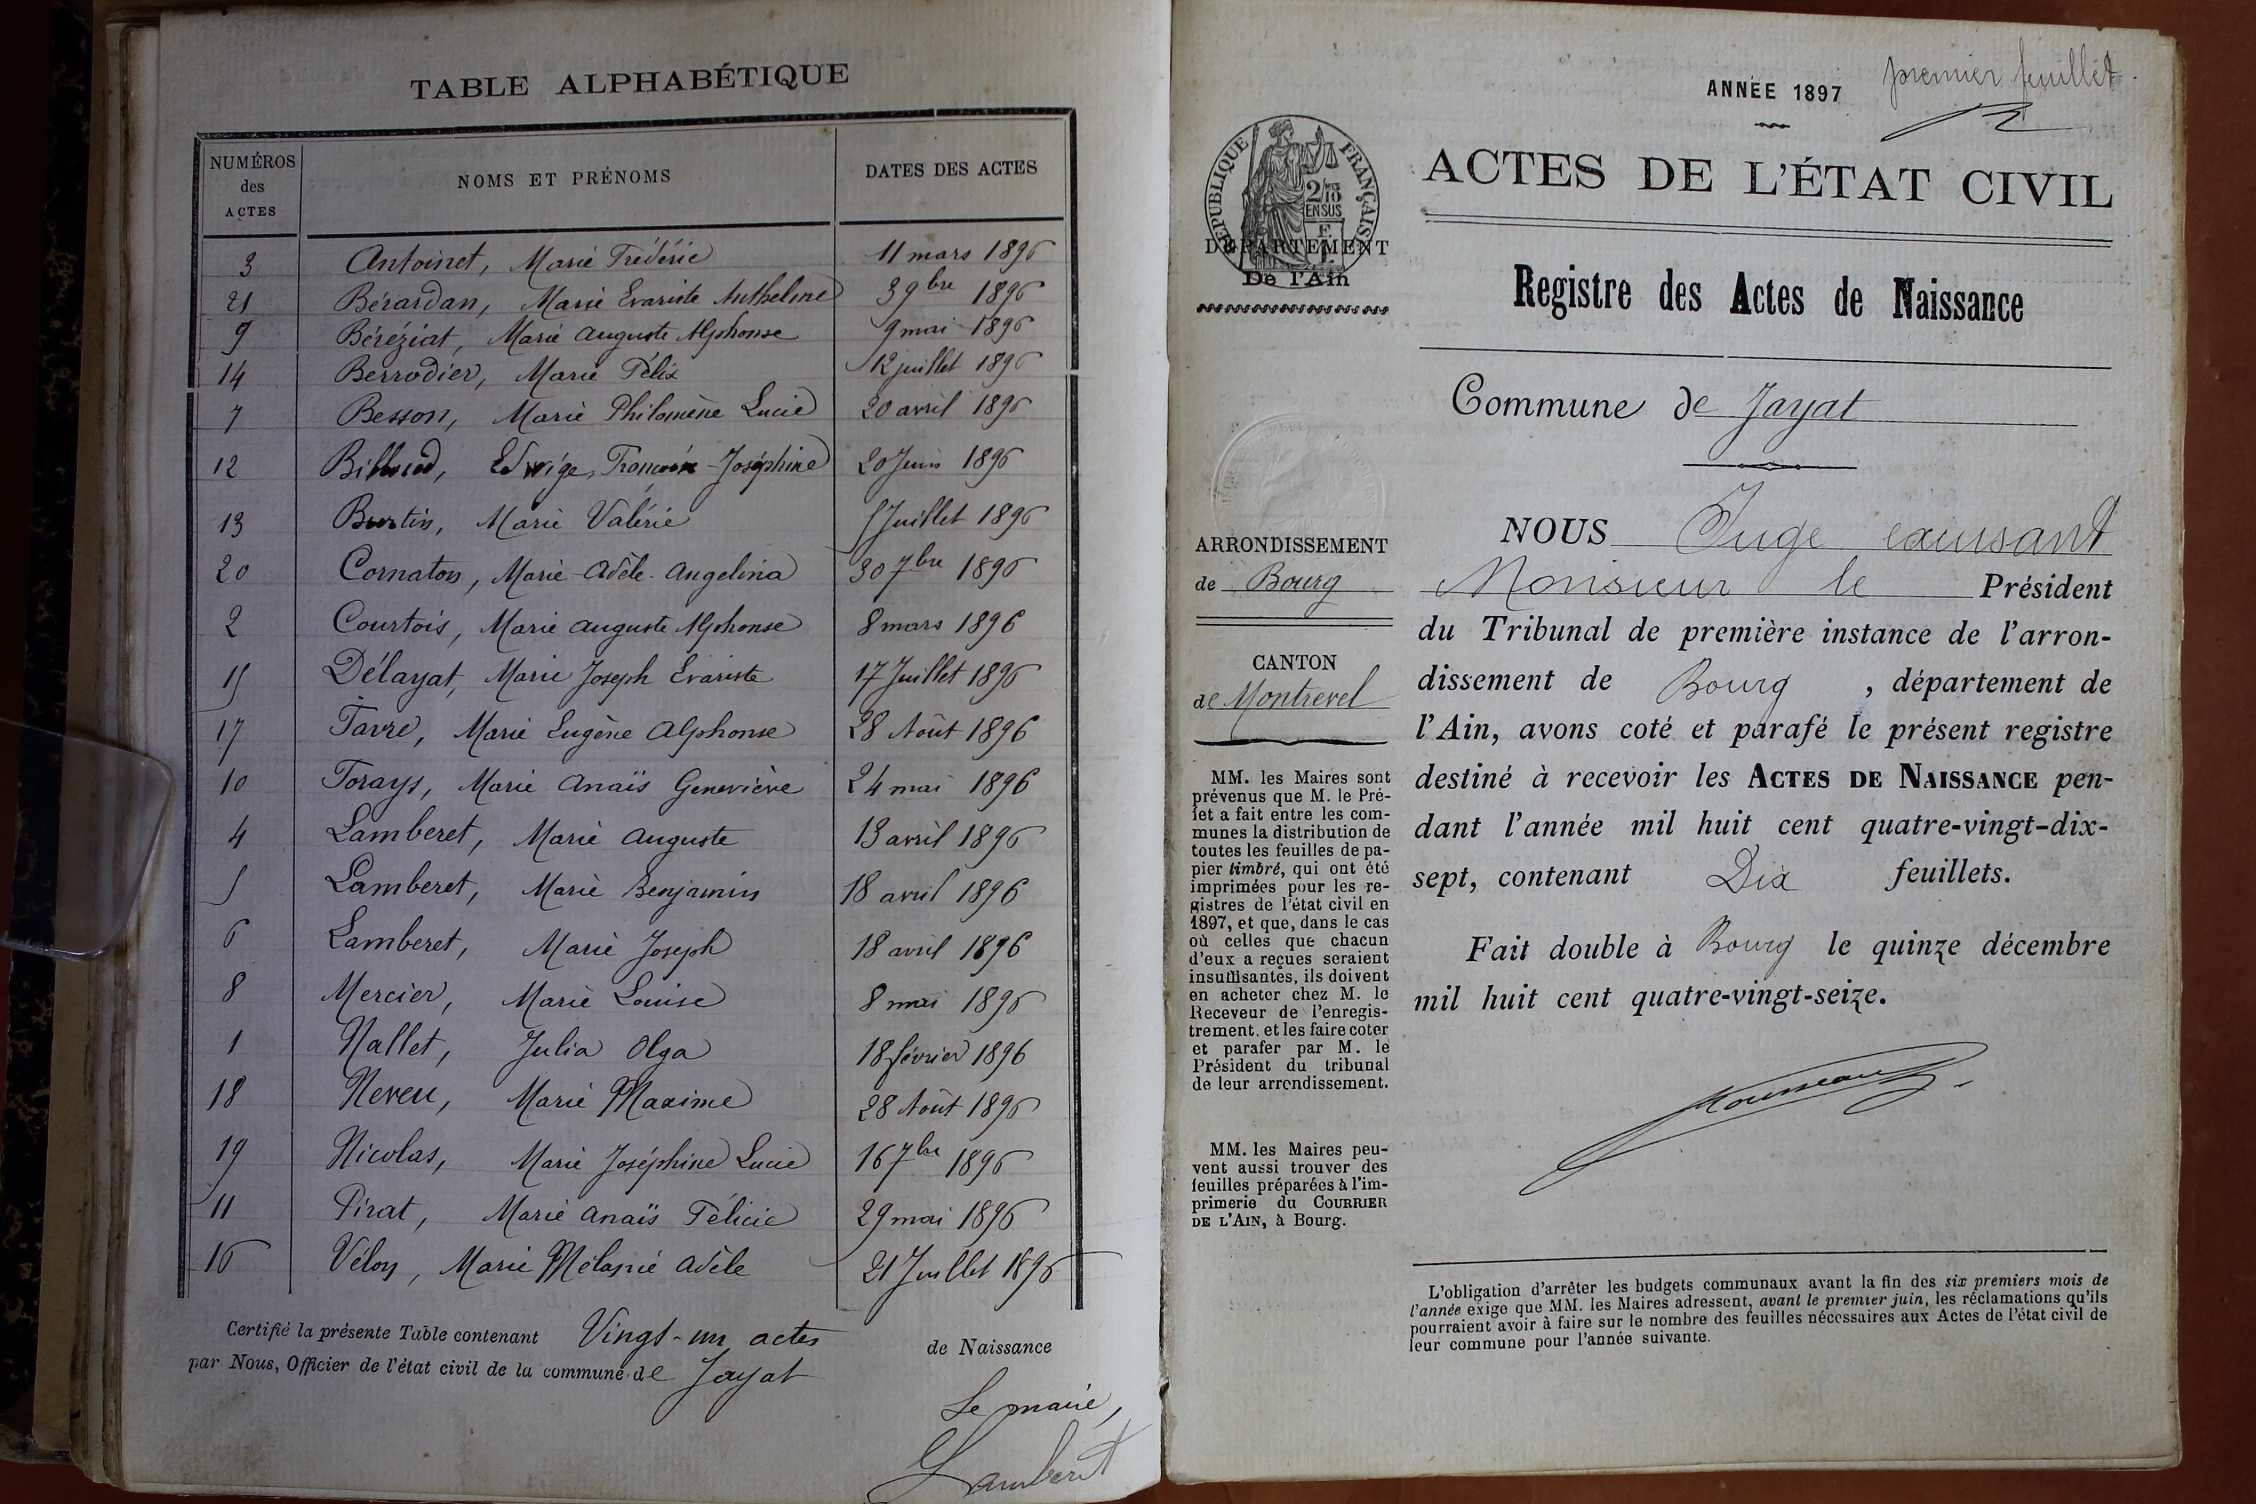 TABLE ALPHABÉTIQUE
NUMÉROS des ACTES NOMS ET PRÉNOMS DATES DES ACTES
3 Antoinet, Marie Frédéric 11 mars 1896
21 Bérardan, Marie Evariste Anthelme 3 9bre 1896
9 Béréziat, Marie Auguste Alphonse 9 mai 1896
14 Berrodier, Marie Félix 12 juillet 1896
7 Besson, Marie Philomène Lucie 20 avril 1896
12 Billoud, Edwige, Joséphine 20 Juin 1896
13 Burtin, Marie Valérie 5 Juillet 1896
20 Cornaton, Marie-Adèle-Angelina 30 7bre 1896
2 Courtois, Marie Auguste Alphonse 8 mars 1896
15 Délayat, Marie Joseph Evariste 17 Juillet 1896
17 Favre, Marie Eugène Alphonse 28 Août 1896
10 Forays, Marie Anaïs Geneviève 24 mai 1896
4 Lamberet, Marie Auguste 13 avril 1896
5 Lamberet, Marie Benjamin 18 avril 1896
6 Lamberet, Marie Joseph 18 avril 1896
8 Mercier, Marie Louise 8 mai 1896
1 Nallet, Julia Olga 18 février 1896
18 Neveu, Marie Maxime 28 Août 1896
19 Nicolas, Marie Joséphine Lucie 16 7bre 1896
11 Pirat, Marie Anaïs Félicie 29 mai 1896
16 Vélon, Marie Mélanie Adèle 21 Juillet 1896
Certifié la présente Table contenant Vingt-un actes de Naissance
par Nous, Officier de l'état civil de la commune de Jayat
Le maire,
Lamberet
premier feuillet.
ANNÉE 1897
RÉPUBLIQUE FRANÇAISE
2/10
EN SUS
DÉPARTEMENT
De l'Ain
ARRONDISSEMENT
de Bourg
CANTON
de Montrevel
MM. les Maires sont
prévenus que M. le Pré-
fet a fait entre les com-
munes la distribution de
toutes les feuilles de pa-
pier timbré, qui ont été
imprimées pour les re-
gistres de l'état civil en
1897, et que, dans le cas
où celles que chacun
d'eux a reçues seraient
insuffisantes, ils doivent
en acheter chez M. le
Receveur de l'enregis-
trement. et les faire coter
et parafer par M. le
Président du tribunal
de leur arrondissement.
MM. les Maires peu-
vent aussi trouver des
feuilles préparées à l'im-
primerie du COURRIER
DE L'AIN, à Bourg.
ACTES DE L'ÉTAT CIVIL
Registre des Actes de Naissance
Commune de Jayat
NOUS Juge excusant
Monsieur le Président
du Tribunal de première instance de l'arron-
dissement de Bourg, département de
l'Ain, avons coté et parafé le présent registre
destiné à recevoir les ACTES DE NAISSANCE pen-
dant l'année mil huit cent quatre-vingt-dix-
sept, contenant Dix feuillets.
Fait double à Bourg le quinze décembre
mil huit cent quatre-vingt-seize.
L'obligation d'arrêter les budgets communaux avant la fin des six premiers mois de
l'année exige que MM. les Maires adressent, avant le premier juin, les réclamations qu'ils
pourraient avoir à faire sur le nombre des feuilles nécessaires aux Actes de l'état civil de
leur commune pour l'année suivante.